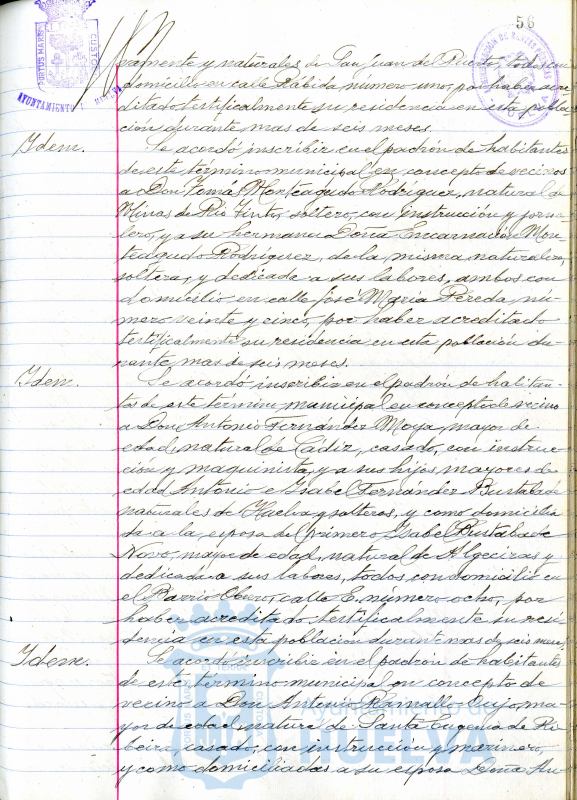 56
PORTUS MARIS ET TERRAE CUSTODIA
AYUNTAMIENTO HUELVA
vamente y naturales de San Juan del Puerto, todos con
domicilio en calle Rábida número uno, por haber acre-
ditado testificalmente su residencia en esta pobla-
ción durante mas de seis meses.
Idem.
Se acordó inscribir en el padrón de habitantes
de este término municipal en concepto de vecinos
a Don Tomá Monteagudo Rodríguez, natural de
Minas de Rio Tinto, soltero, con instrucción y jorna-
lero, y a su hermana Doña Encarnación Mon-
teagudo Rodriguez, de la misma naturaleza,
soltera, y dedicada a sus labores, ambos con
domicilio en calle José María Pereda, nú-
mero veinte y cinco, por haber acreditado
testificalmente su residencia en esta población du-
rante mas de seis meses.
Idem.
Se acordó inscribir en el padrón de habitan-
tes de este término municipal en concepto de vecino
a Don Antonio Fernández Moya, mayor de
edad, natural de Cádiz, casado, con instruc-
ción y maquinista, y a sus hijos, mayores de
edad Antonio e Isabel Fernandez Bustabade
naturales de Huelva, solteros, y como domicilia-
da a la esposa del primero Isabel Bustabade
Novo, mayor de edad, natural de Algeciras y
dedicada a sus labores, todos con domicilio en
el Barrio Obrero, calle E. número ocho, por
haber acreditado testificalmente su resi-
dencia en esta población durante mas de seis meses.
Idem.
Se acordó inscribir en el padron de habitantes
de este término municipal en concepto de
vecino a Don Antonio Ramallo Laijo, ma-
yor de edad, natural de Santa Eugenia de Ri-
beira, casado, con instrucción y marinero,
y como domiciliadas a su esposa Doña
Ayuntamiento de
HUELVA